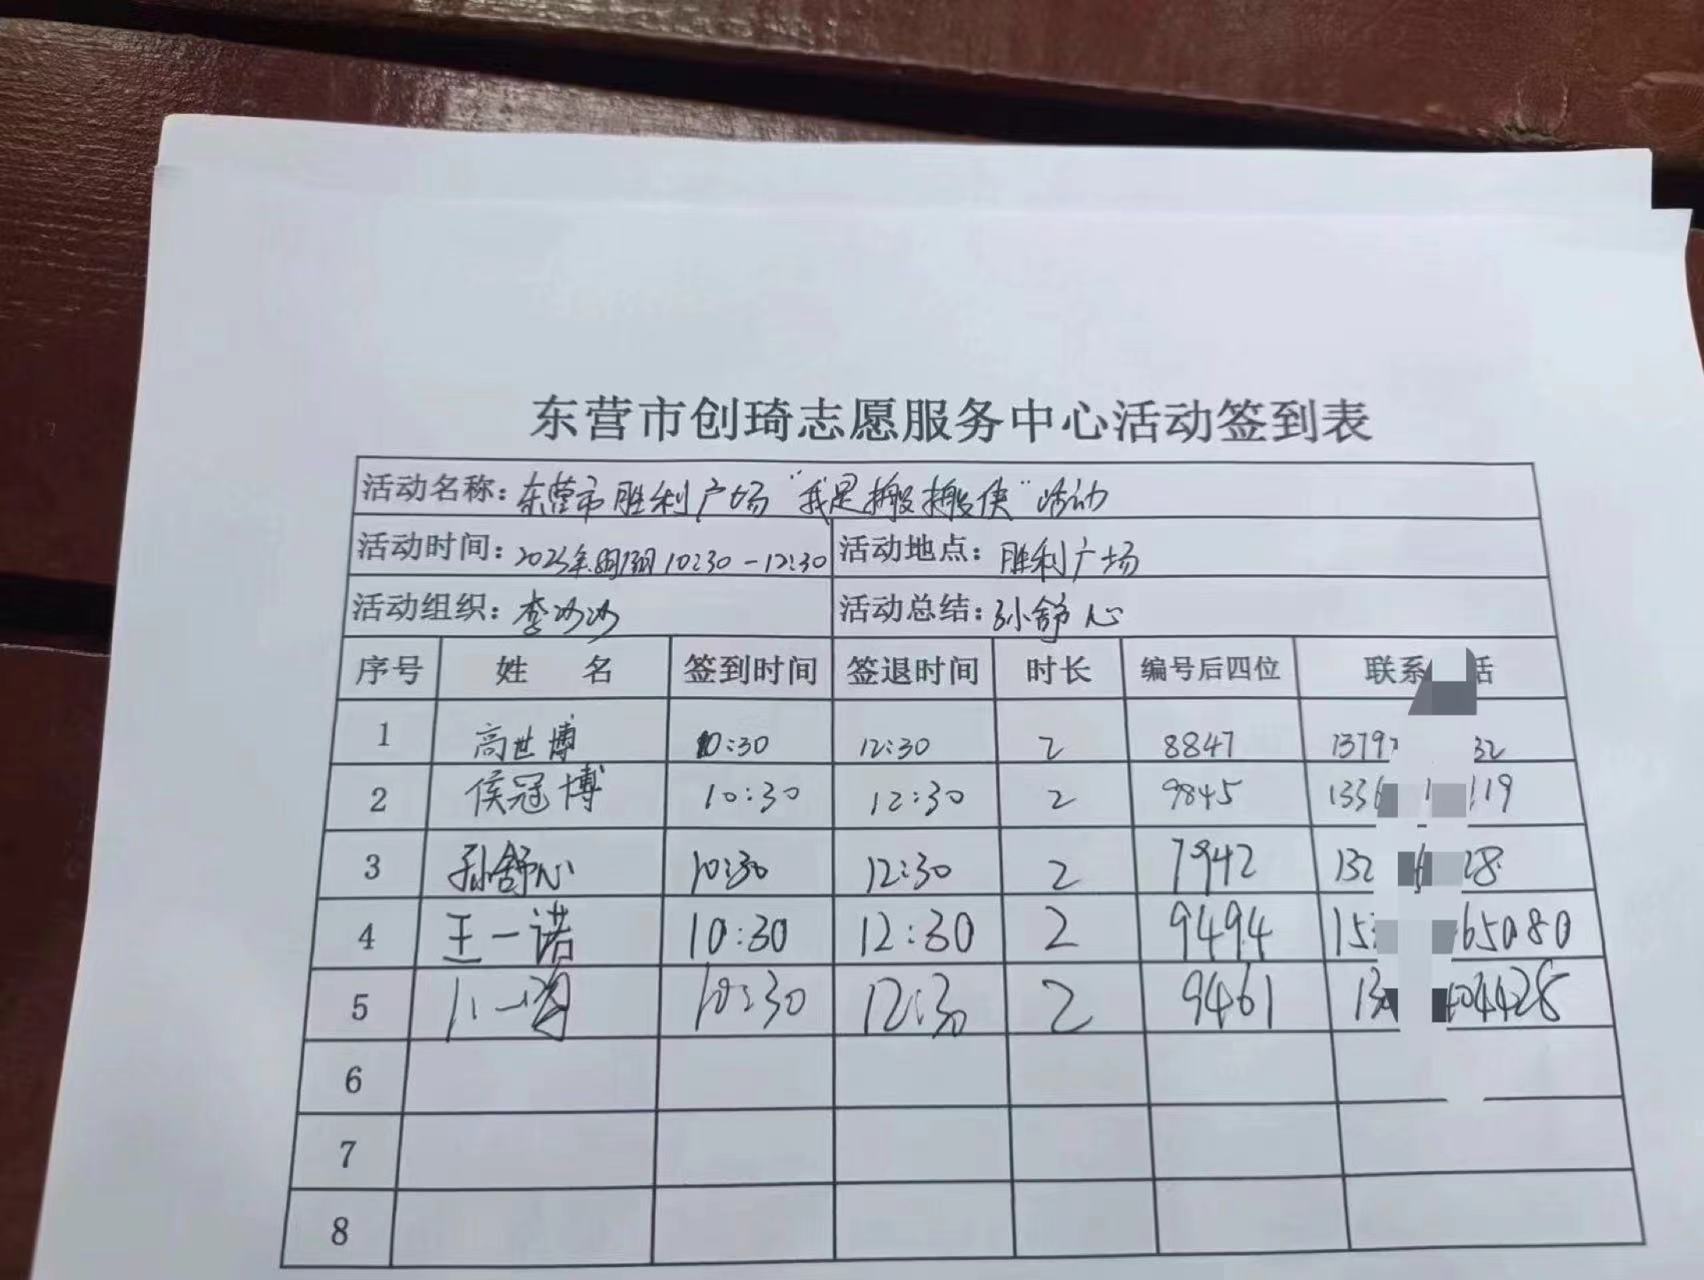 东营市创琦志愿服务中心活动签到表
活动名称：东营市胜利广场“我是搬搬侠”活动
活动时间：2023年 10:30-12:30 活动地点：胜利广场
活动组织：李 活动总结：孙舒心
序号 姓 名 签到时间 签退时间 时长 编号后四位 联系 话
1 高世博 10:30 12:30 2 8847 1379 32
2 侯冠博 10:30 12:30 2 9845 133 119
3 孙舒心 10:30 12:30 2 7942 132 28
4 王一诺 10:30 12:30 2 9494 15 65080
5 一 10:30 12:30 2 9461 13 04428
6
7
8